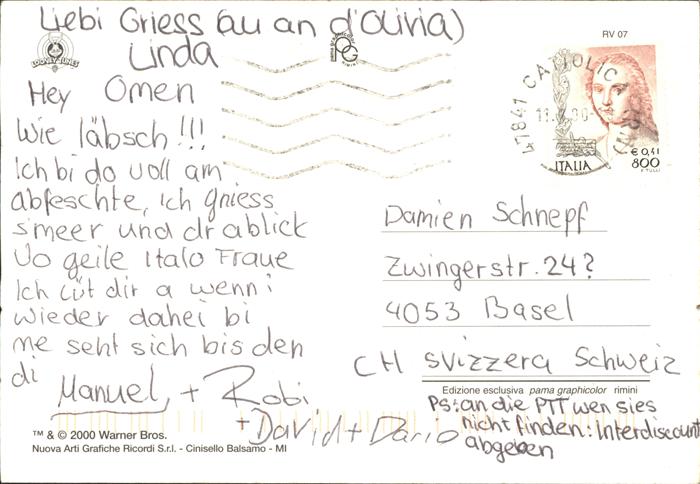 Liebi Griess (au an d'Olivia)
Linda
Hey Omen
Wie läbsch!!!
Ich bi do voll am
abfeschte, ich gniess
s'meer und dr ablick
Vo geile Italo Fraue
Ich lüt dir a wenn i
wieder dahei bi
me seht sich bis den
di Manuel, + Robi
+ David + Dario
LOONEY TUNES
RV 07
47841 CATTOLICA
ITALIA
€ 0,41
800
F. TULLI
Damien Schnepf
Zwingerstr. 24?
4053 Basel
CH Svizzera Schweiz
Edizione esclusiva pama graphicolor rimini
Ps: an die PTT wen sies
nicht finden: Interdiscount
abgeben
™ & © 2000 Warner Bros.
Nuova Arti Grafiche Ricordi S.r.l. - Cinisello Balsamo - MI